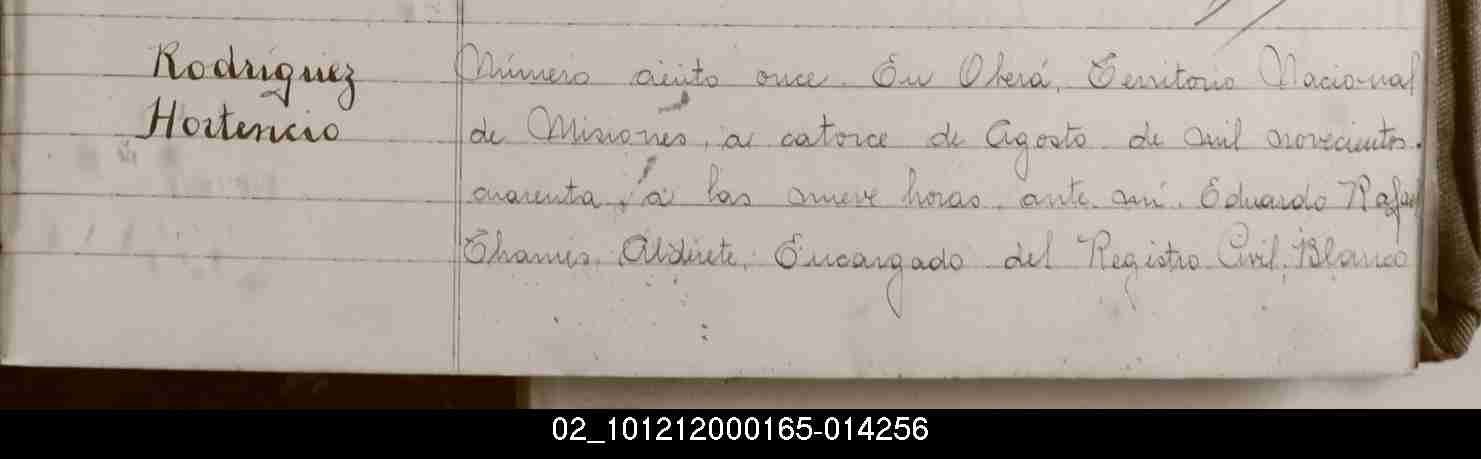 Rodriguez
Hortencio
Número ciento once. En Oberá, Territorio Nacional
de Misiones, a catorce de Agosto de mil novecientos.
cuarenta, a las nueve horas ante mí. Eduardo Rafael
Chamis, Alderete, Encargado del Registro Civil, Blanco
02_101212000165-014256